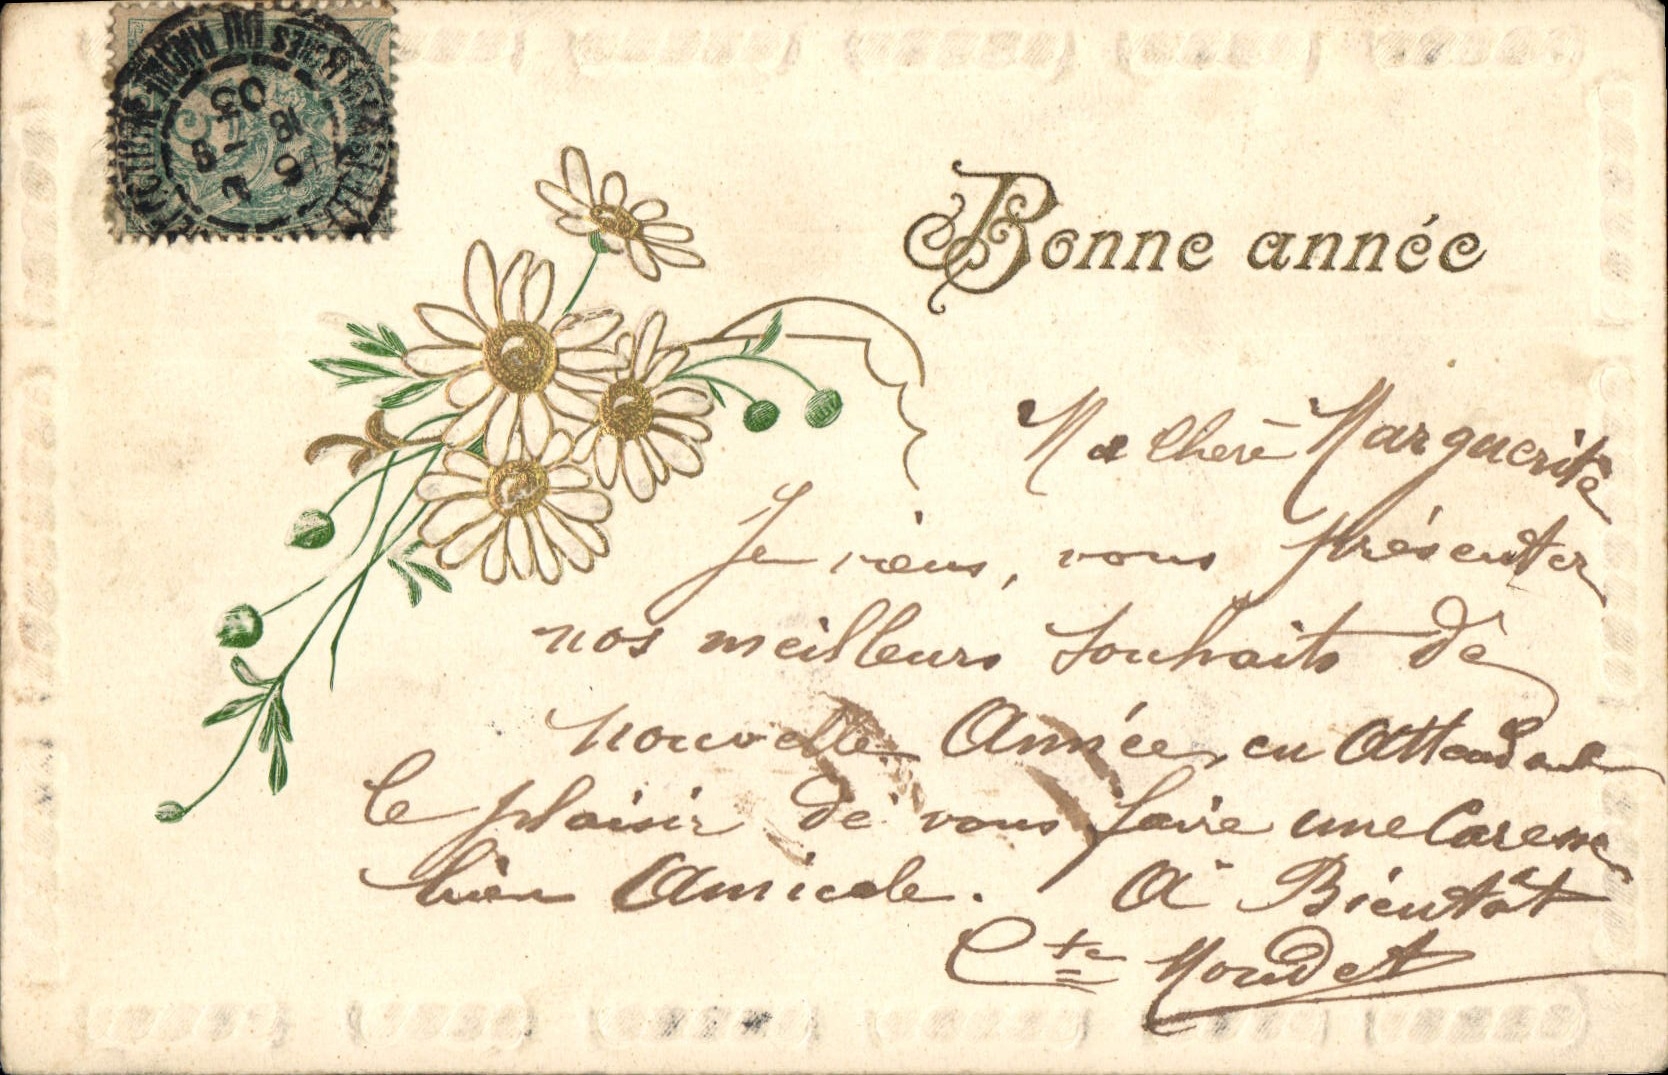 Bonne année
Ma Chère Marguerite
Je viens, vous présenter
nos meilleurs souhaits de
nouvelle Année, en Attendant
le plaisir de vous faire une Caresse
bien Amicale. A Bientôt
Cte Mondet